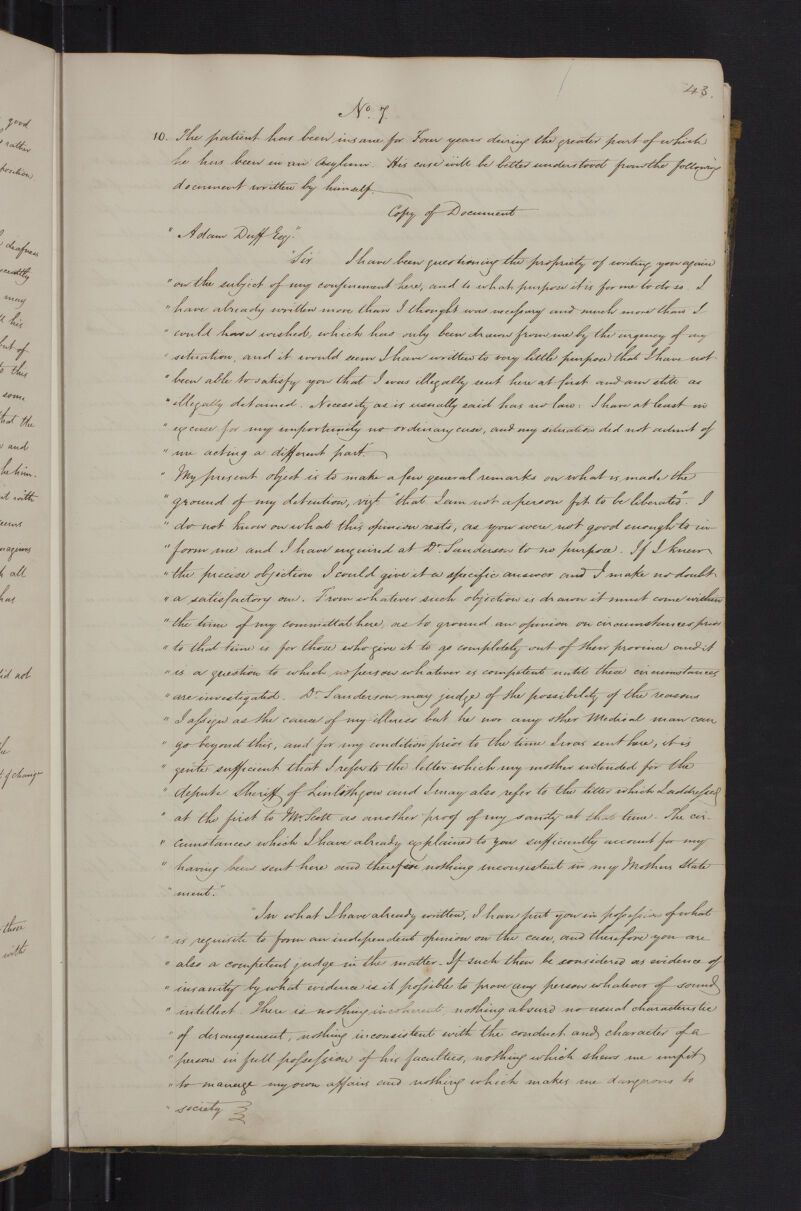 43.
No. 7
10. The patient has been insane for Four years during the greater part of which
he has been in an Asylum. His case will be better understood from the following
document written by himself.
Copy of Document
" Adam Duff Esq."
"Sir I have been questioning the propriety of writing you again
" on the subject of my confinement here, and to what purpose it is for me to do so. I
" have already written more than I thought was necessary and much more than I
" could have wished, which has only been drawn from me by the urgency of my
" situation, and it would seem I have written to very little purpose that I have not
" been able to satisfy you that I was illegally sent here at first and am still as
" illegally detained. Necessity as is usually said has no law: I have at least in
" excuse for my importunity no ordinary case, and my situation did not admit of
" me acting a different part.
" My present object is to make a few general remarks on what is made the
" ground of my detention, vizt. "that I am not a person fit to be liberated". I
" do not know on what this opinion rests, as you were not good enough to in-
" form me and I have enquired at Dr. Sanderson to no purpose. If I knew
" the precise objection I could give it a specific answer and I make no doubt
" a satisfactory one. From whatever such objection is drawn it must come within
" the time of my committal here, as to ground an opinion on circumstances prior
" to that time is for those who give it to go completely out of their province and it
" is a question to which no person whatever is competent until these circumstances
" are investigated. Dr. Sanderson may judge of the possibility of the reasons
" I assign as the cause of my illness but he nor any other Medical man can
" go beyond this, and for my condition prior to the time I was sent here, it is
" quite sufficient that I refer to the letter which my mother intended for the
" depute Sheriff of Linlithgow and I may also refer to the letter which I addressed
" at the first to Mr. Scott as another proof of my sanity at that time. The cir-
" cumstances which I have already explained to you sufficiently account for my
" having been sent here and therefore nothing inconsistent in my Mothers State
" ment."
" In what I have already written, I have put you in possession of what
" is requisite to form an independent opinion on the case, and therefore you are
" also a competent judge in the matter. If such then be considered as evidence of
" insanity by what evidence is it possible to prove any person whatever of sound
" intellect. There is nothing incoherent, nothing absurd no usual characteristic
" of derangement, nothing inconsistent with the conduct and character of a
" person in full possession of his faculties, nothing which shews me unfit
" to manage my own affairs and nothing which makes me dangerous to
" society
good
rather
position
deafness
may
his
but of
this
some
that the
and
with
all
has
did not
of change
those
with